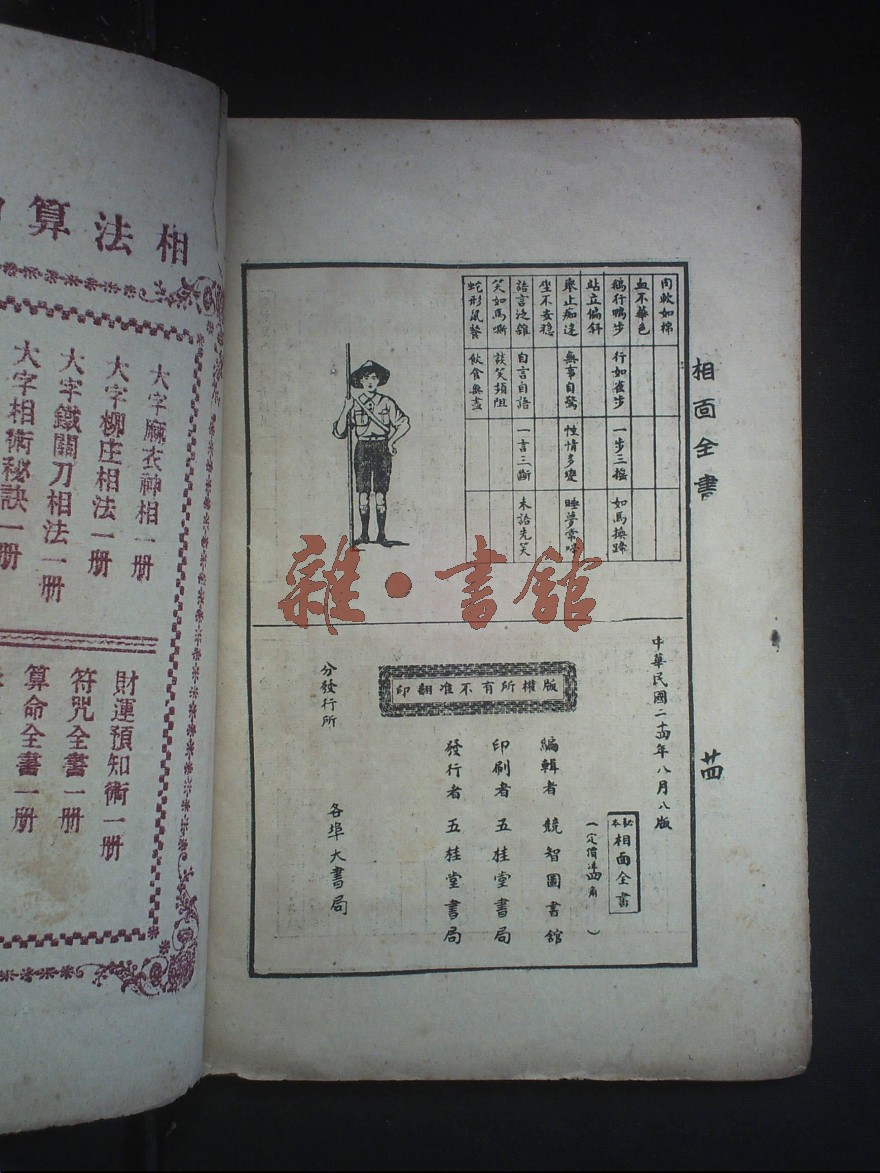 相面全書
廿四
肉軟如棉
血不華色
鵝行鴨步 行如雀步 一步三搖 如馬換蹄
站立偏斜
舉止痴迷 無事自驚 性情多變
坐不安穩
語言泛雜 自言自語 一言三斷 未語先笑
笑如馬嘶 談笑頻阻
蛇形鼠餐 飲食無盡
中華民國二十四年八月八版
秘本相面全書
編輯者 競智圖書館
印刷者 五桂堂書局
發行者 五桂堂書局
分發行所 各埠大書局
版權所有不准翻印
雜·書館
相法算
大字麻衣神相一册
大字柳庄相法一册
大字鐵關刀相法一册
大字相術秘訣一册
財運預知術一册
符咒全書一册
算命全書一册